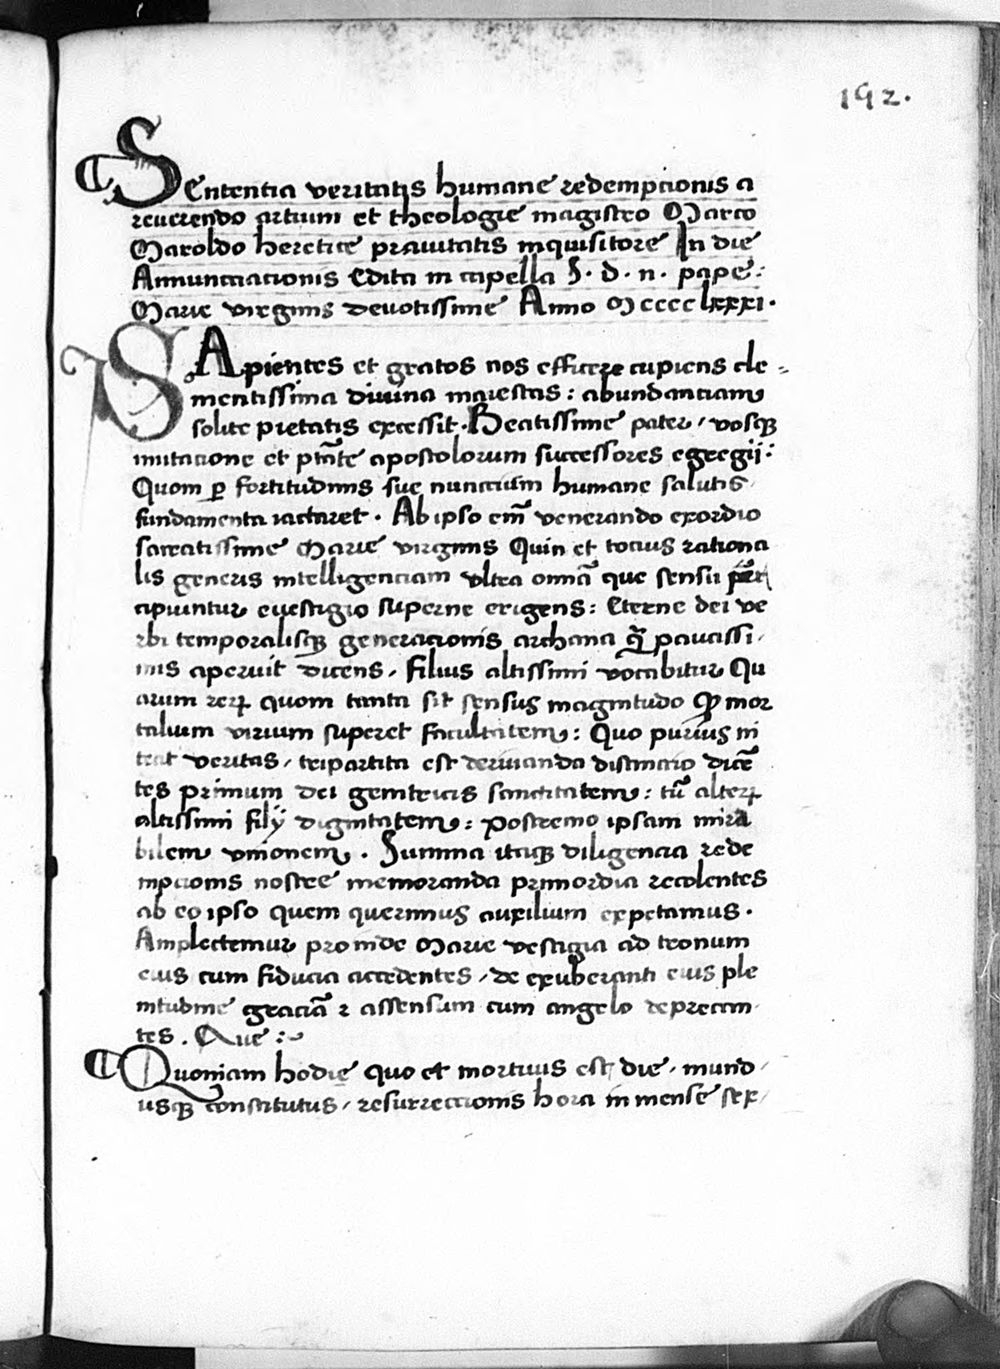 192.
Sententia veritatis humane redemptionis a
reuerendo artium et theologie magistro Marco
Maroldo heretice prauitatis inquisitore In die
Annunctiacionis Edita in capella S. d. n. pape:
Marie virginis deuotissime Anno Mcccclxxxi.
SApientes et gratos nos efficere cupiens cle-
mentissima diuina maiestas: abundantiam
solite pietatis excessit. Beatissime pater, vosqꝫ
imitatione et ptāte apostolorum successores egregij:
Quom ꝑ fortitudinis sue nunctium humane salutis
fundamenta iactaret. Ab ipso em̄ venerando exordio
sacratissime Marie virginis Quin et totius rationa
lis generis intelligenciam vltra omnā que sensu
cipiuntur euestigio superne erigens: Eterne dei ve
rbi temporalisqꝫ generacionis archana ꝙ̄ paucissi,
mis aperuit dicens, Filius altissimi vocabitur Qu
arum reꝝ quom tanta sit sensus magnitudo Ꝙ mor
talium virium superet facultatem: Quo purius ni
teat veritas, tripartita est deriuanda distinctio dicē
tes primum dei genitricis sanctitatem: tū alteꝝ
altissimi filij dignitatem: Postremo ipsam mira
bilem vnionem. Summa itaqꝫ diligencia rede
mpcionis nostre memoranda primordia recolentes
ab eo ipso quem querimus auxilium expetamus.
Amplectemur proinde Marie vestigia ad tronum
eius cum fiducia accedentes, de exuberanti eius ple
nitudine graciā ⁊ assensum cum angelo deprecan
tes. Aue:~
Quoniam hodie quo et mortuus est die, mund
usqꝫ constitutus, resurrectionis hora in mense sex,